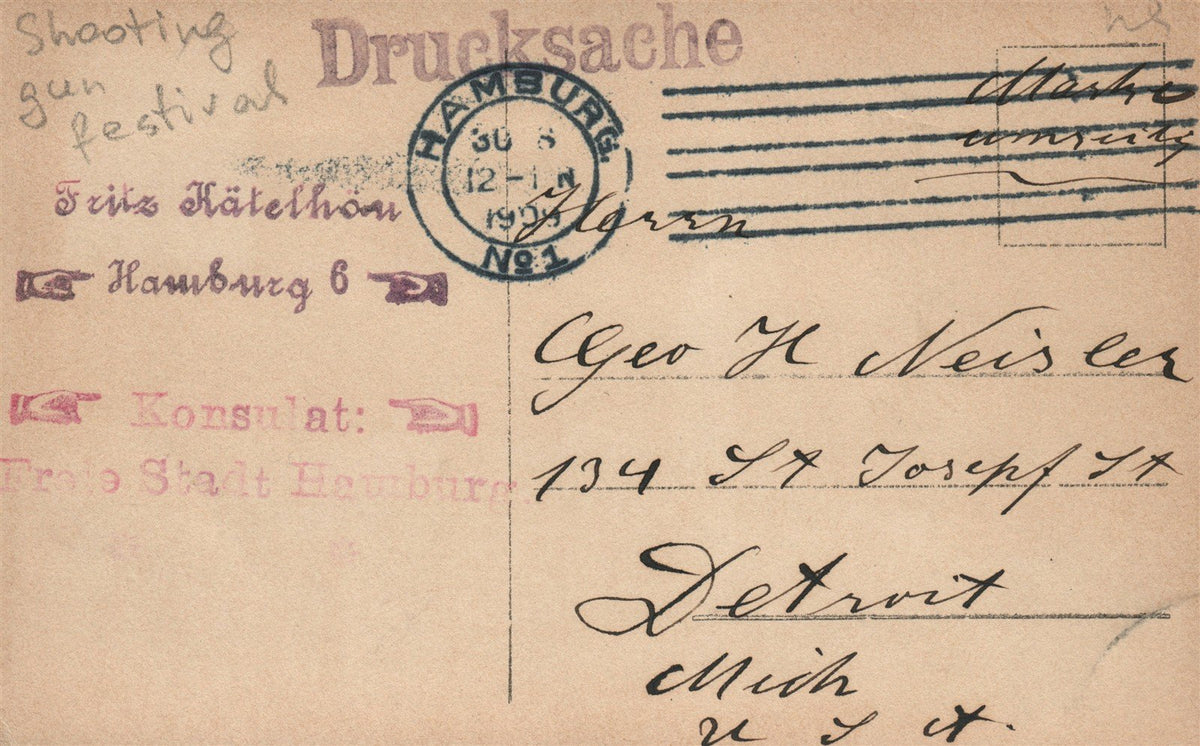 Shooting
gun
festival
Drucksache
HAMBURG.
30 8
12-1 N
No 1
Marke
umseitig
Fritz Kätelhön
Hamburg 6
Konsulat:
Freie Stadt Hamburg.
Herrn
Geo H Neisler
134 St Josepf St
Detroit
Mich
U S A.